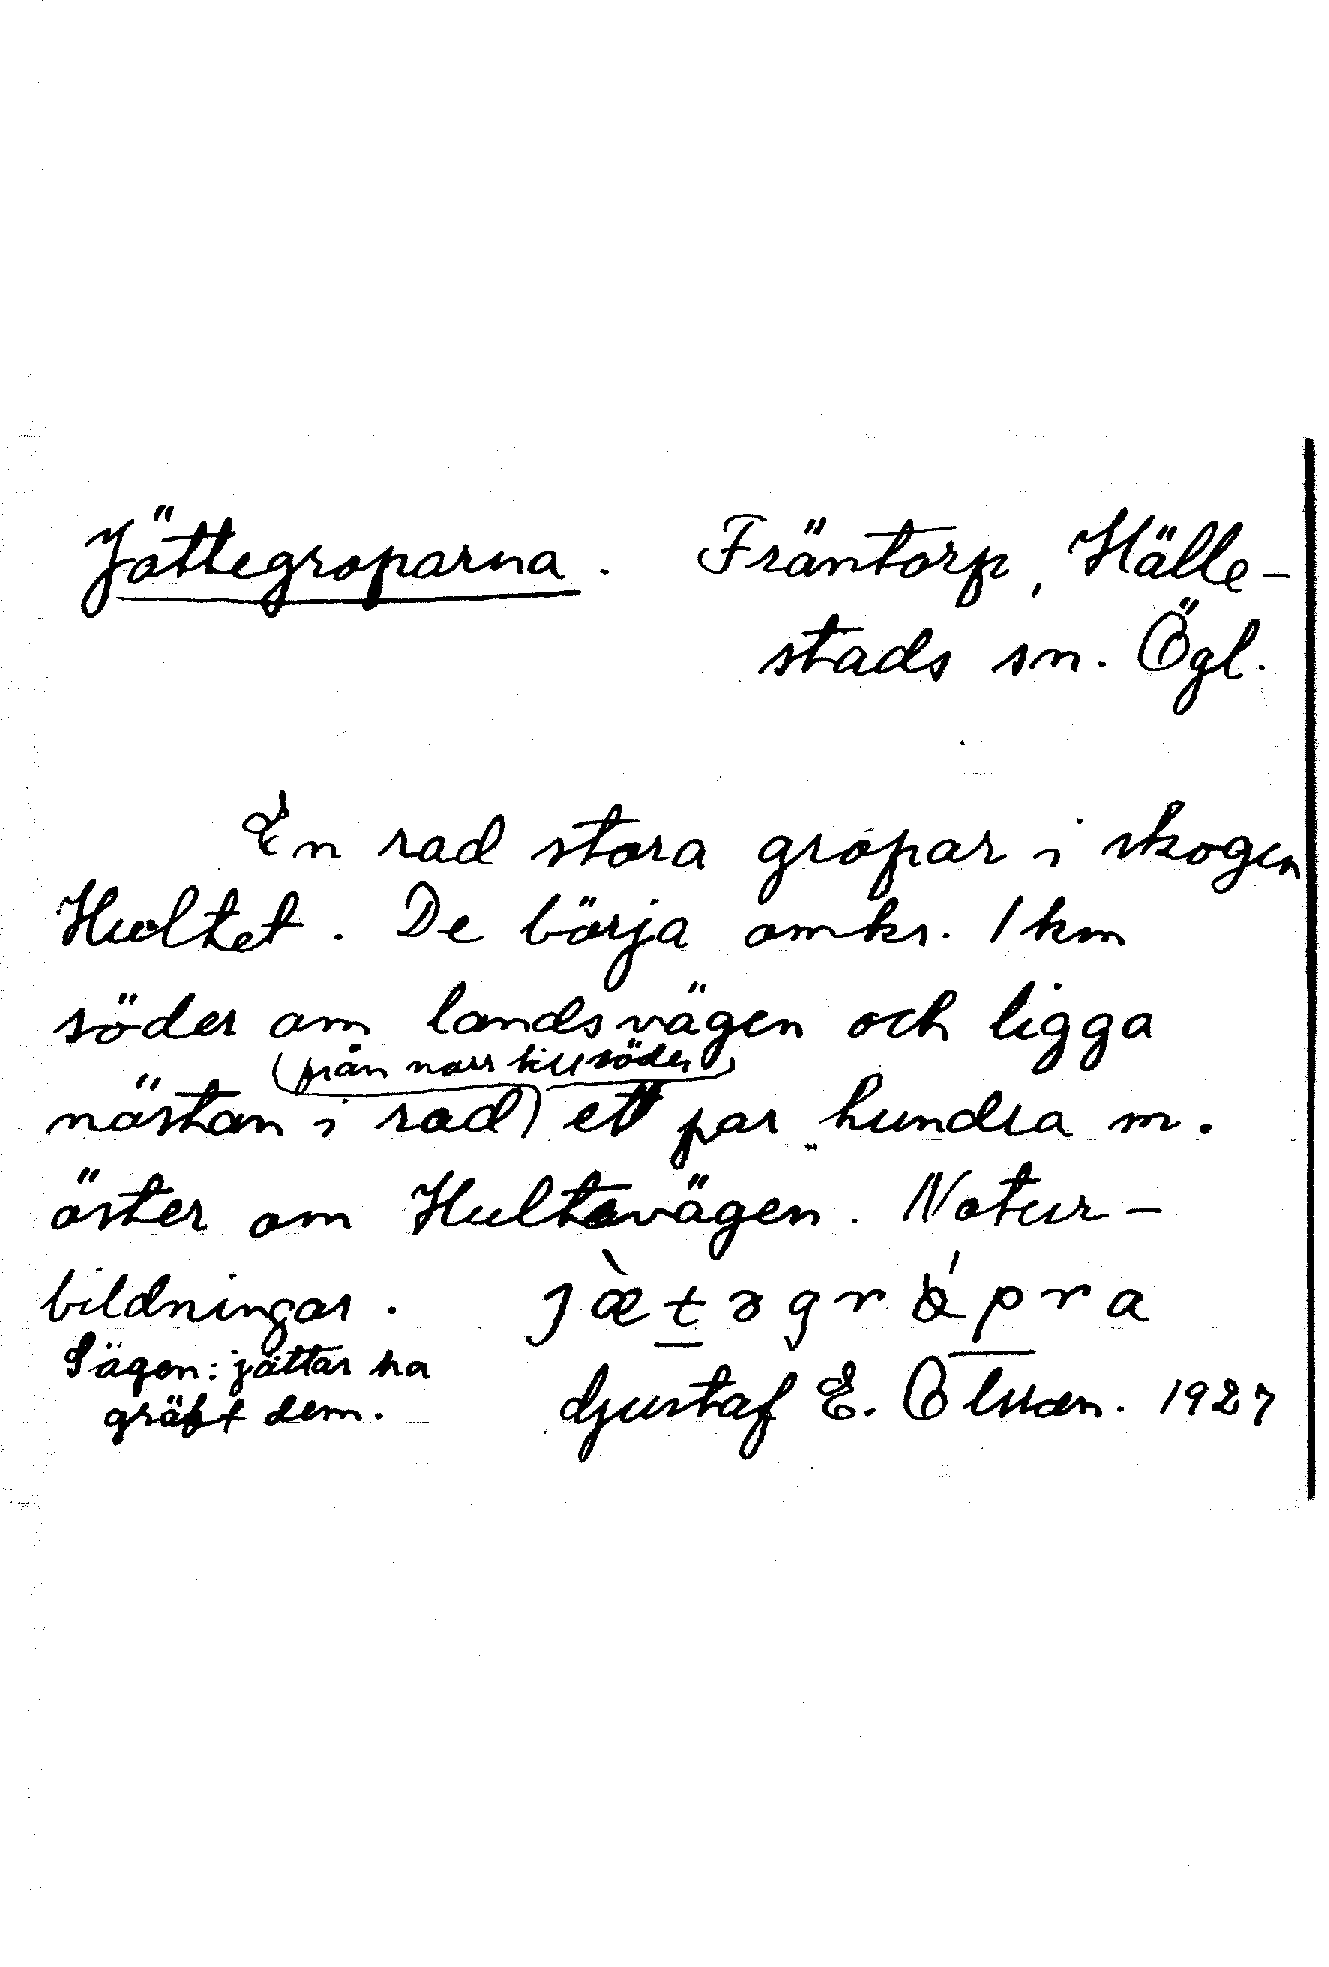 Jättegroparna. Fräntorp, Hälle-
stads sn. Ögl.
En rad stora gropar i skogen
Hultet. De börja omkr. 1 km
söder om landsvägen och ligga
från norr till söder
nästan i rad ett par hundra m.
öster om Hultavägen. Natur-
bildningar. jæ̀təgrápra
Sägen: jättar ha
gräft dem. Gustaf E. Olsson. 1927